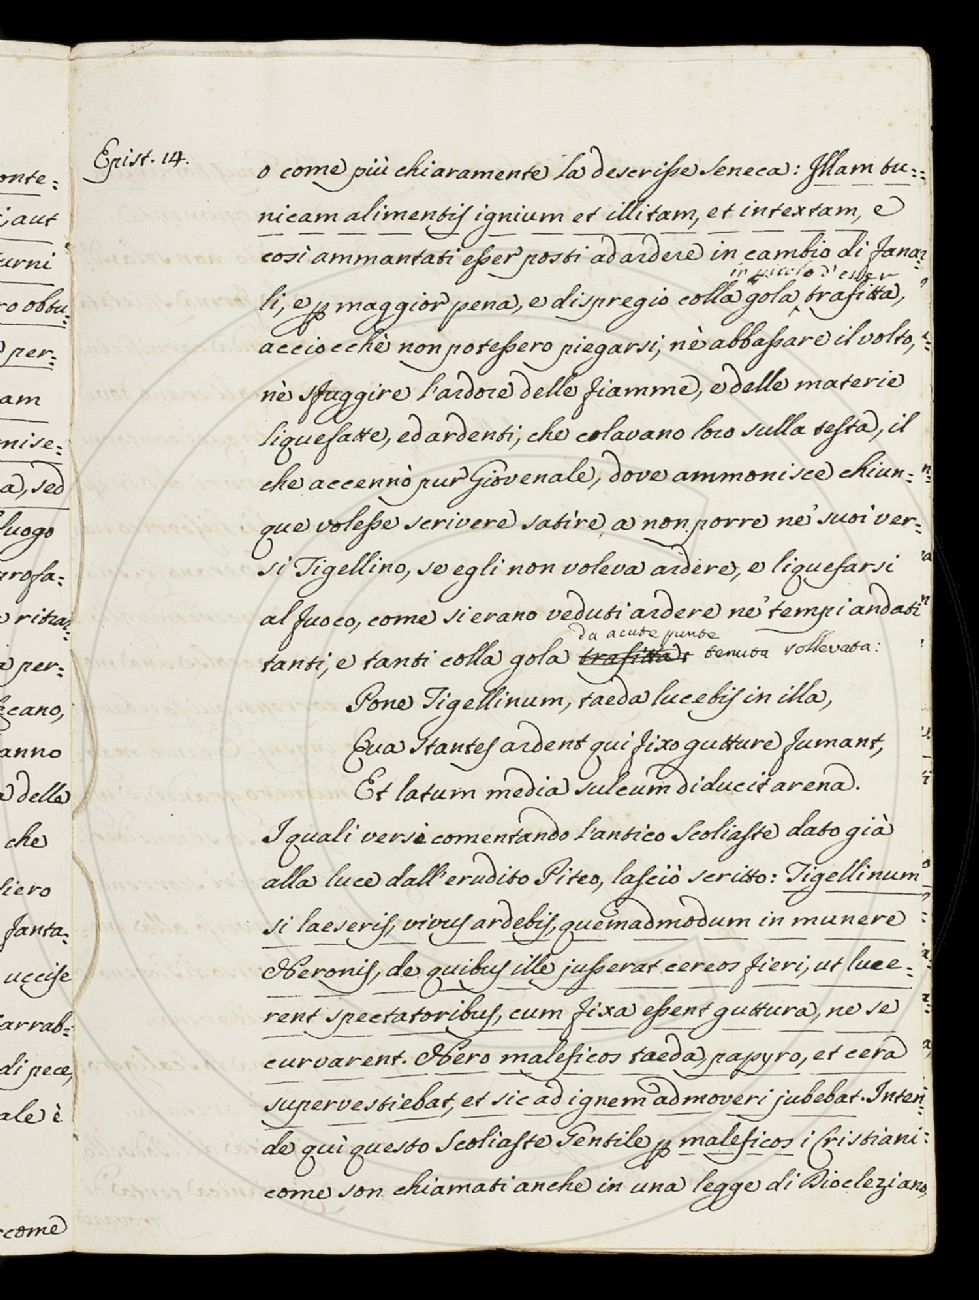 Epist. 14.
o come più chiaramente la descrisse Seneca: Illam tu=
nicam alimentis ignium et illitam, et intextam, e
così ammantati esser posti ad ardere in cambio di fana=
in pericolo d'esser
li, e p maggior pena, e dispregio colla gola trafitta,
acciocchè non potessero piegarsi, nè abbassare il volto,
nè sfuggire l'ardore delle fiamme, e delle materie
liquefatte, ed ardenti, che colavano loro sulla testa, il
che accennò pur Giovenale, dove ammonisce chiun=
que volesse scrivere satire a non porre ne' suoi ver=
si Tigellino, se egli non voleva ardere, e liquefarsi
al fuoco, come si erano veduti ardere ne' tempi andati
da acute punte
tanti, e tanti colla gola trafitta: tenuta sollevata:
Pone Tigellinum, taeda lucebis in illa,
Qua stantes ardent qui fixo gutture fumant,
Et latum media sulcum diducit arena.
I quali versi comentando l'antico Scoliaste dato già
alla luce dall'erudito Piteo, lasciò scritto: Tigellinum
si laeseris, vivus ardebis, quemadmodum in munere
Neronis, de quibus ille jusserat cereos fieri, ut luce=
rent spectatoribus, cum fixa essent guttura, ne se
curvarent. Nero maleficos taeda, papyro, et cera
supervestiebat, et sic ad ignem admoveri jubebat. Inten=
de quì questo Scoliaste Gentile p maleficos i Cristiani:
come son chiamati anche in una legge di Diocleziano,
onte=
, aut
urni
ro obbu=
per=
am
mise=
a, sed
luogo
profa=
e ritrat=
a per=
cano,
anno
a della
che
liero
fanta=
uccise
carrab=
di pece,
ale è
come